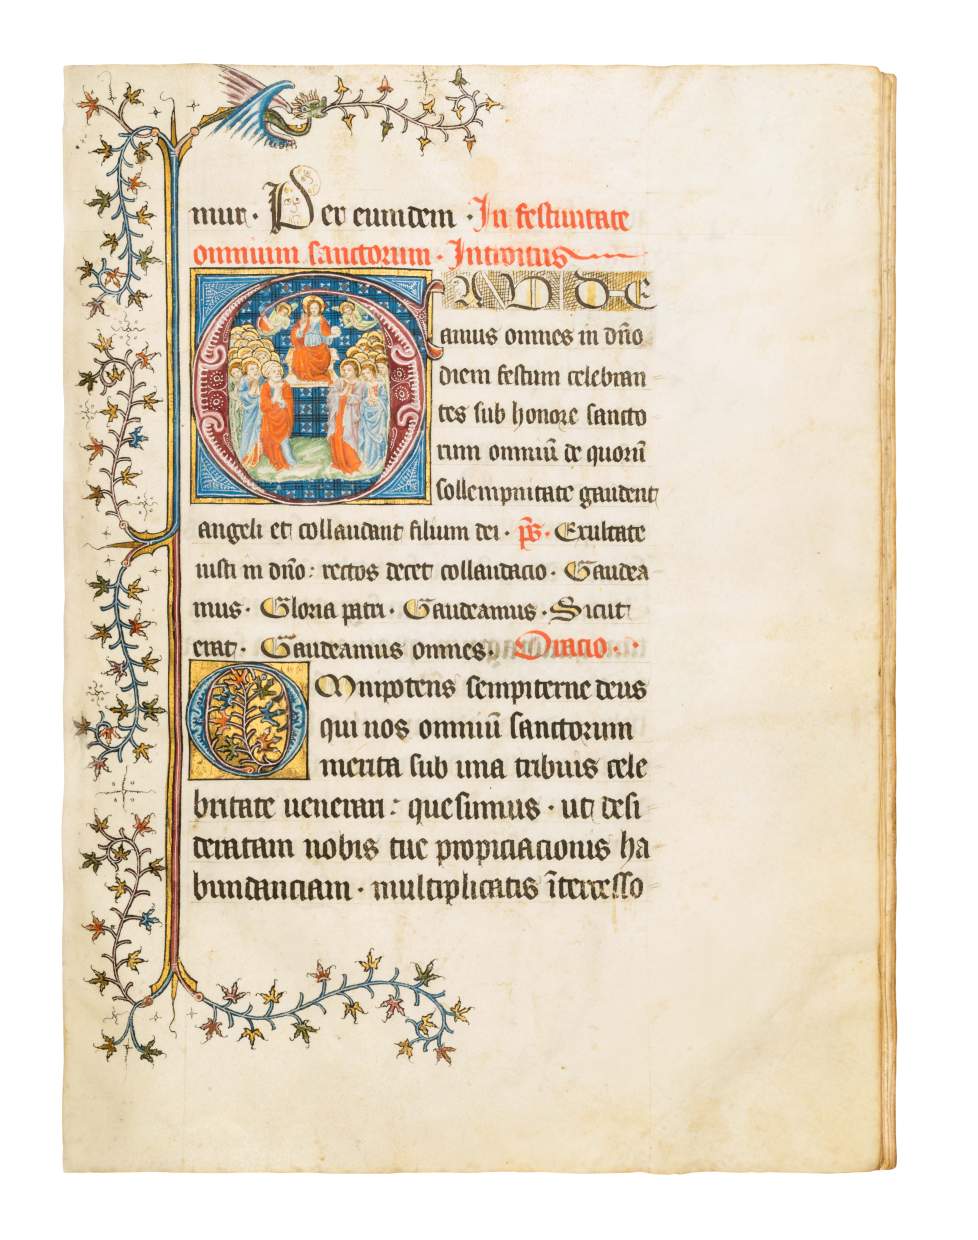 mur · Per eundem · In festiuitate
omnium sanctorum · Introitus
GAUDE
amus omnes in dño
diem festum celebran
tes sub honore sancto
rum omniū de quorū
sollempnitate gaudent
angeli et collaudant filium dei · p̄s · Exultate
iusti in dño : rectos decet collaudacio · Gaudea
mus · Gloria patri · Gaudeamus · Sicut
erat · Gaudeamus omnes · Oracio ·
OMnipotens sempiterne deus
qui nos omniū sanctorum
merita sub una tribuis cele
britate uenerari : quesumus · ut desi
deratam nobis tue propiciacionis ha
bundanciam · multiplicatis ītercesso